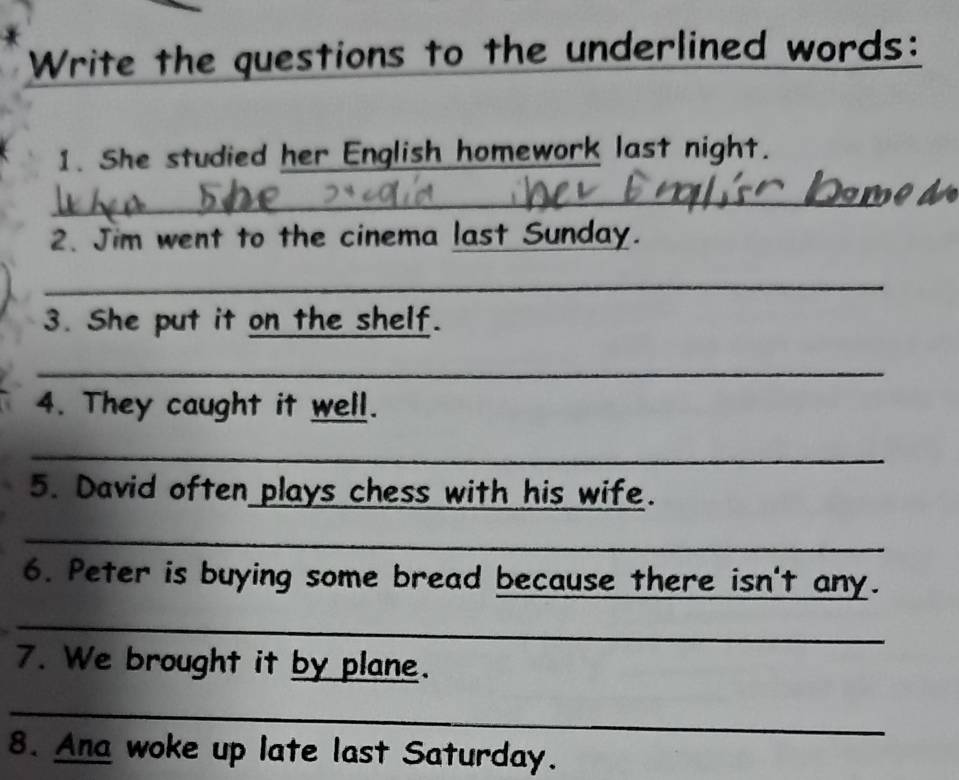 Write the questions to the underlined words:
1. She studied her English homework last night.
she her English
2. Jim went to the cinema last Sunday.
3. She put it on the shelf.
4. They caught it well.
5. David often plays chess with his wife.
6. Peter is buying some bread because there isn't any.
7. We brought it by plane.
8. Ana woke up late last Saturday.